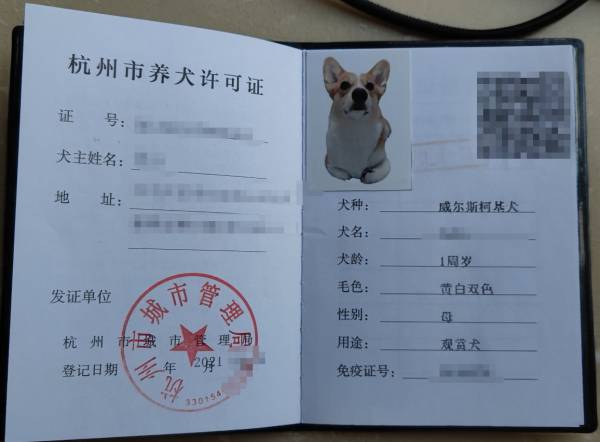 杭州市养犬许可证
证 号:
犬主姓名:
地 址:
发证单位
杭州市城市管理局
登记日期 2021 年 月
杭州市城市管理局
330154
犬种: 威尔斯柯基犬
犬名:
犬龄: 1周岁
毛色: 黄白双色
性别: 母
用途: 观赏犬
免疫证号: